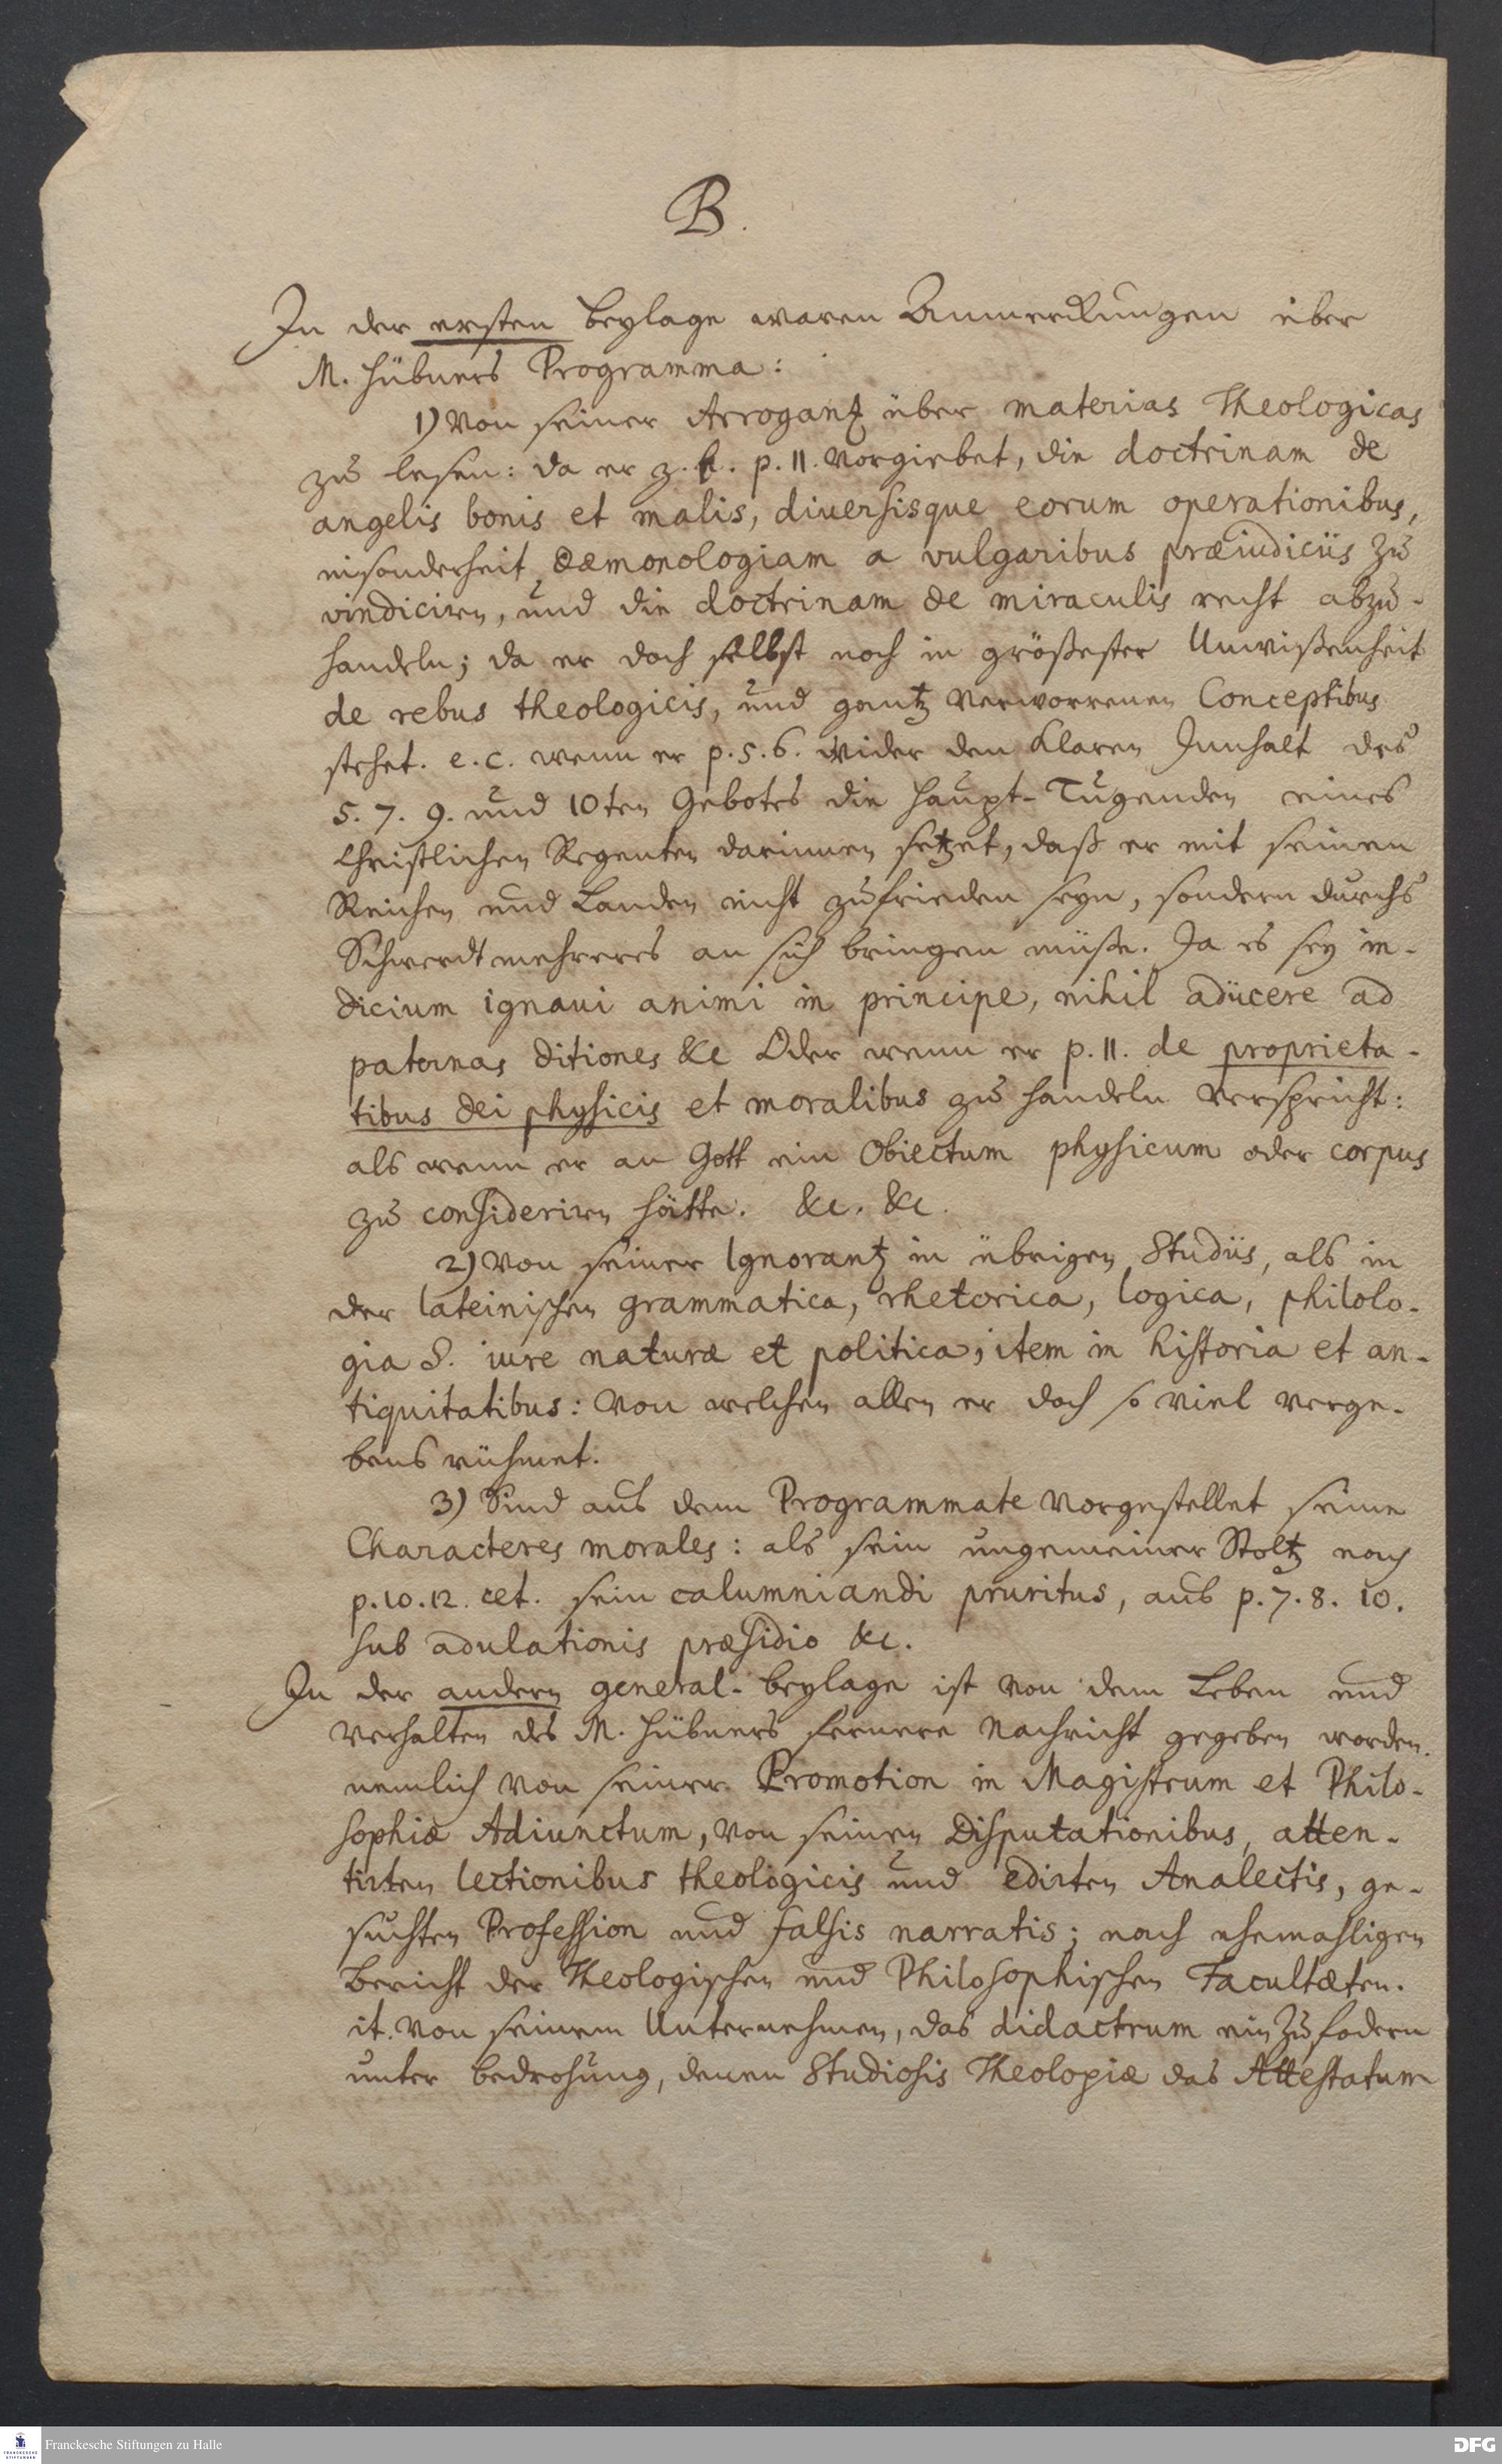 B.
In der ersten Beylage waren Anmerckungen über
M. Hübners Programma:
1) Von seiner Arrogantz über materias Theologicas
zu lesen: da er z. E. p. 11. vorgiebet, die doctrinam de
angelis bonis et malis, diversisque eorum operationibus,
insonderheit dæmonologiam a vulgaribus præiudiciis zu
vindiciren, und die doctrinam de miraculis recht abzu-
handeln; da er doch selbst noch in größester Unwißenheit
de rebus theologicis, und gantz verworrenen Conceptibus
stehet. e. c. wenn er p. 5. 6. wider den klaren Innhalt des
5. 7. 9. und 10ten Gebotes die Haupt-Tugenden eines
Christlichen Regenten darinnen setzet, daß er mit seinen
Reichen und Landen nicht zufrieden seyn, sondern durchs
Schwerdt mehreres an sich bringen müße. Ja es sey in-
dicium ignaui animi in principe, nihil adiicere ad
paternas ditiones &c Oder wenn er p. 11. de proprieta-
tibus dei physicis et moralibus zu handeln verspricht:
als wenn er an Gott ein Obiectum physicum oder corpus
zu consideriren hätte. &c. &c.
2) Von seiner Ignorantz in übrigen Studiis, als in
der lateinischen grammatica, rhetorica, logica, philolo-
gia S. iure naturæ et politica; item in historia et an-
tiquitatibus: Von welchen allen er doch so viel verge-
bens rühmet.
3) Sind aus dem Programmate vorgestellet seine
Characteres morales: als sein ungemeiner Stoltz nach
p. 10. 12. cet. sein calumniandi pruritus, aus p. 7. 8. 10.
sub adulationis præsidio &c.
In der andern general-Beylage ist von dem Leben und
Verhalten des M. Hübners fernere Nachricht gegeben worden.
nemlich von seiner Promotion in Magistrum et Philo-
sophiæ Adiunctum, von seinen Disputationibus, atten-
tirten lectionibus theologicis und edirten Analectis, ge-
suchten Profession und falsis narratis; nach ehemahligen
Bericht der Theologischen und Philosophischen Facultæten.
it. von seinem Unternehmen, das didactrum einzufodern
unter Bedrohung, denen Studiosis Theologiæ das Attestatum
Franckesche Stiftungen zu Halle
DFG